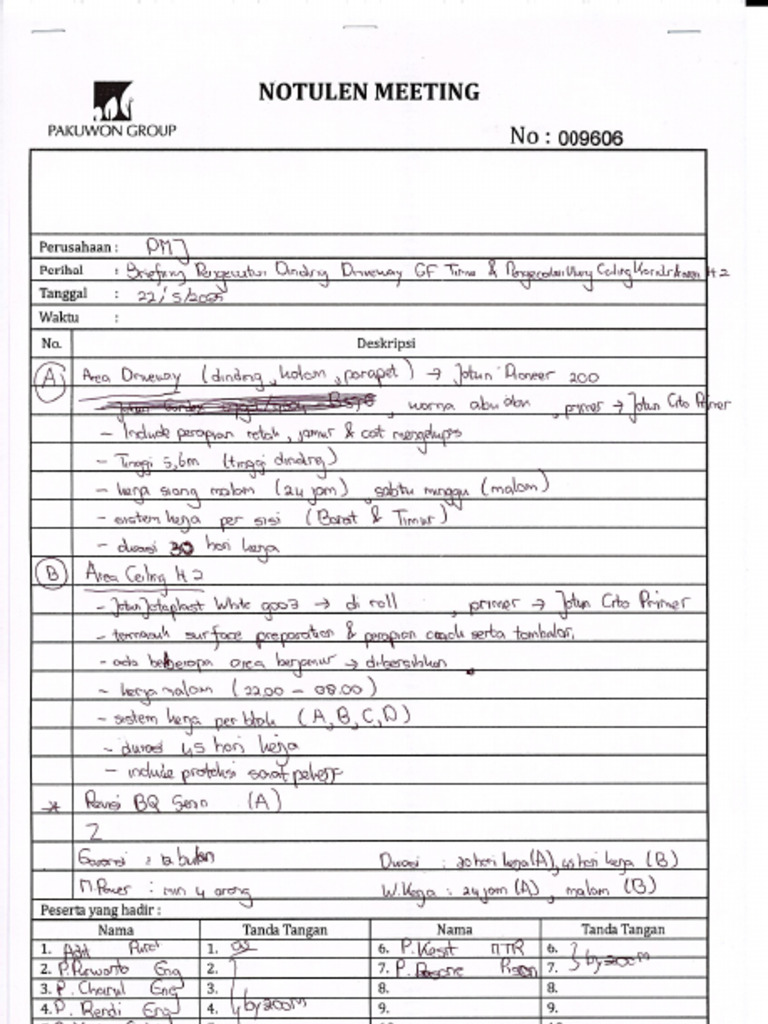 NOTULEN MEETING
PAKUWON GROUP
No : 009606
Perusahaan : PMJ
Perihal : Briefing Pengecatan Dinding Driveway GF Timur & Pengecatan Ceiling H 2
Tanggal : 22/5/2025
Waktu :
No. Deskripsi
A Area Driveway (dinding, kolom, parapet) → Jotun Pioneer 200
, warna abu abu , primer → Jotun Cito Primer
- Include perapian retak, jamur & cat mengelupas
- Tinggi 5,6m (tinggi dinding)
- kerja siang malam (24 jam) , sabtu minggu (malam)
- sistem kerja per sisi (Barat & Timur)
- durasi 30 hari kerja
B Area Ceiling H 2
- Jotun Jotaplast White 9003 → di roll , primer → Jotun Cito Primer
- termasuk surface preparation & perapian serta tambalan,
- ada beberapa area berjamur → dibersihkan
- kerja malam (22.00 - 08.00)
- sistem kerja per blok (A, B, C, D)
- durasi 45 hari kerja
- include proteksi saat
* Revisi BQ (A)
Garansi : 12 bulan Durasi : 30 hari kerja (A), 45 hari kerja (B)
M.Power : min 4 orang W.Kerja : 24 jam (A) , malam (B)
Peserta yang hadir :
Nama Tanda Tangan Nama Tanda Tangan
1. 1. 6. P. 6. by zoom
2. P. Purwanto Eng 2. 7. P. 7.
3. P. Eng 3. 8. 8.
4. P. Rendi Eng 4. by zoom 9. 9.